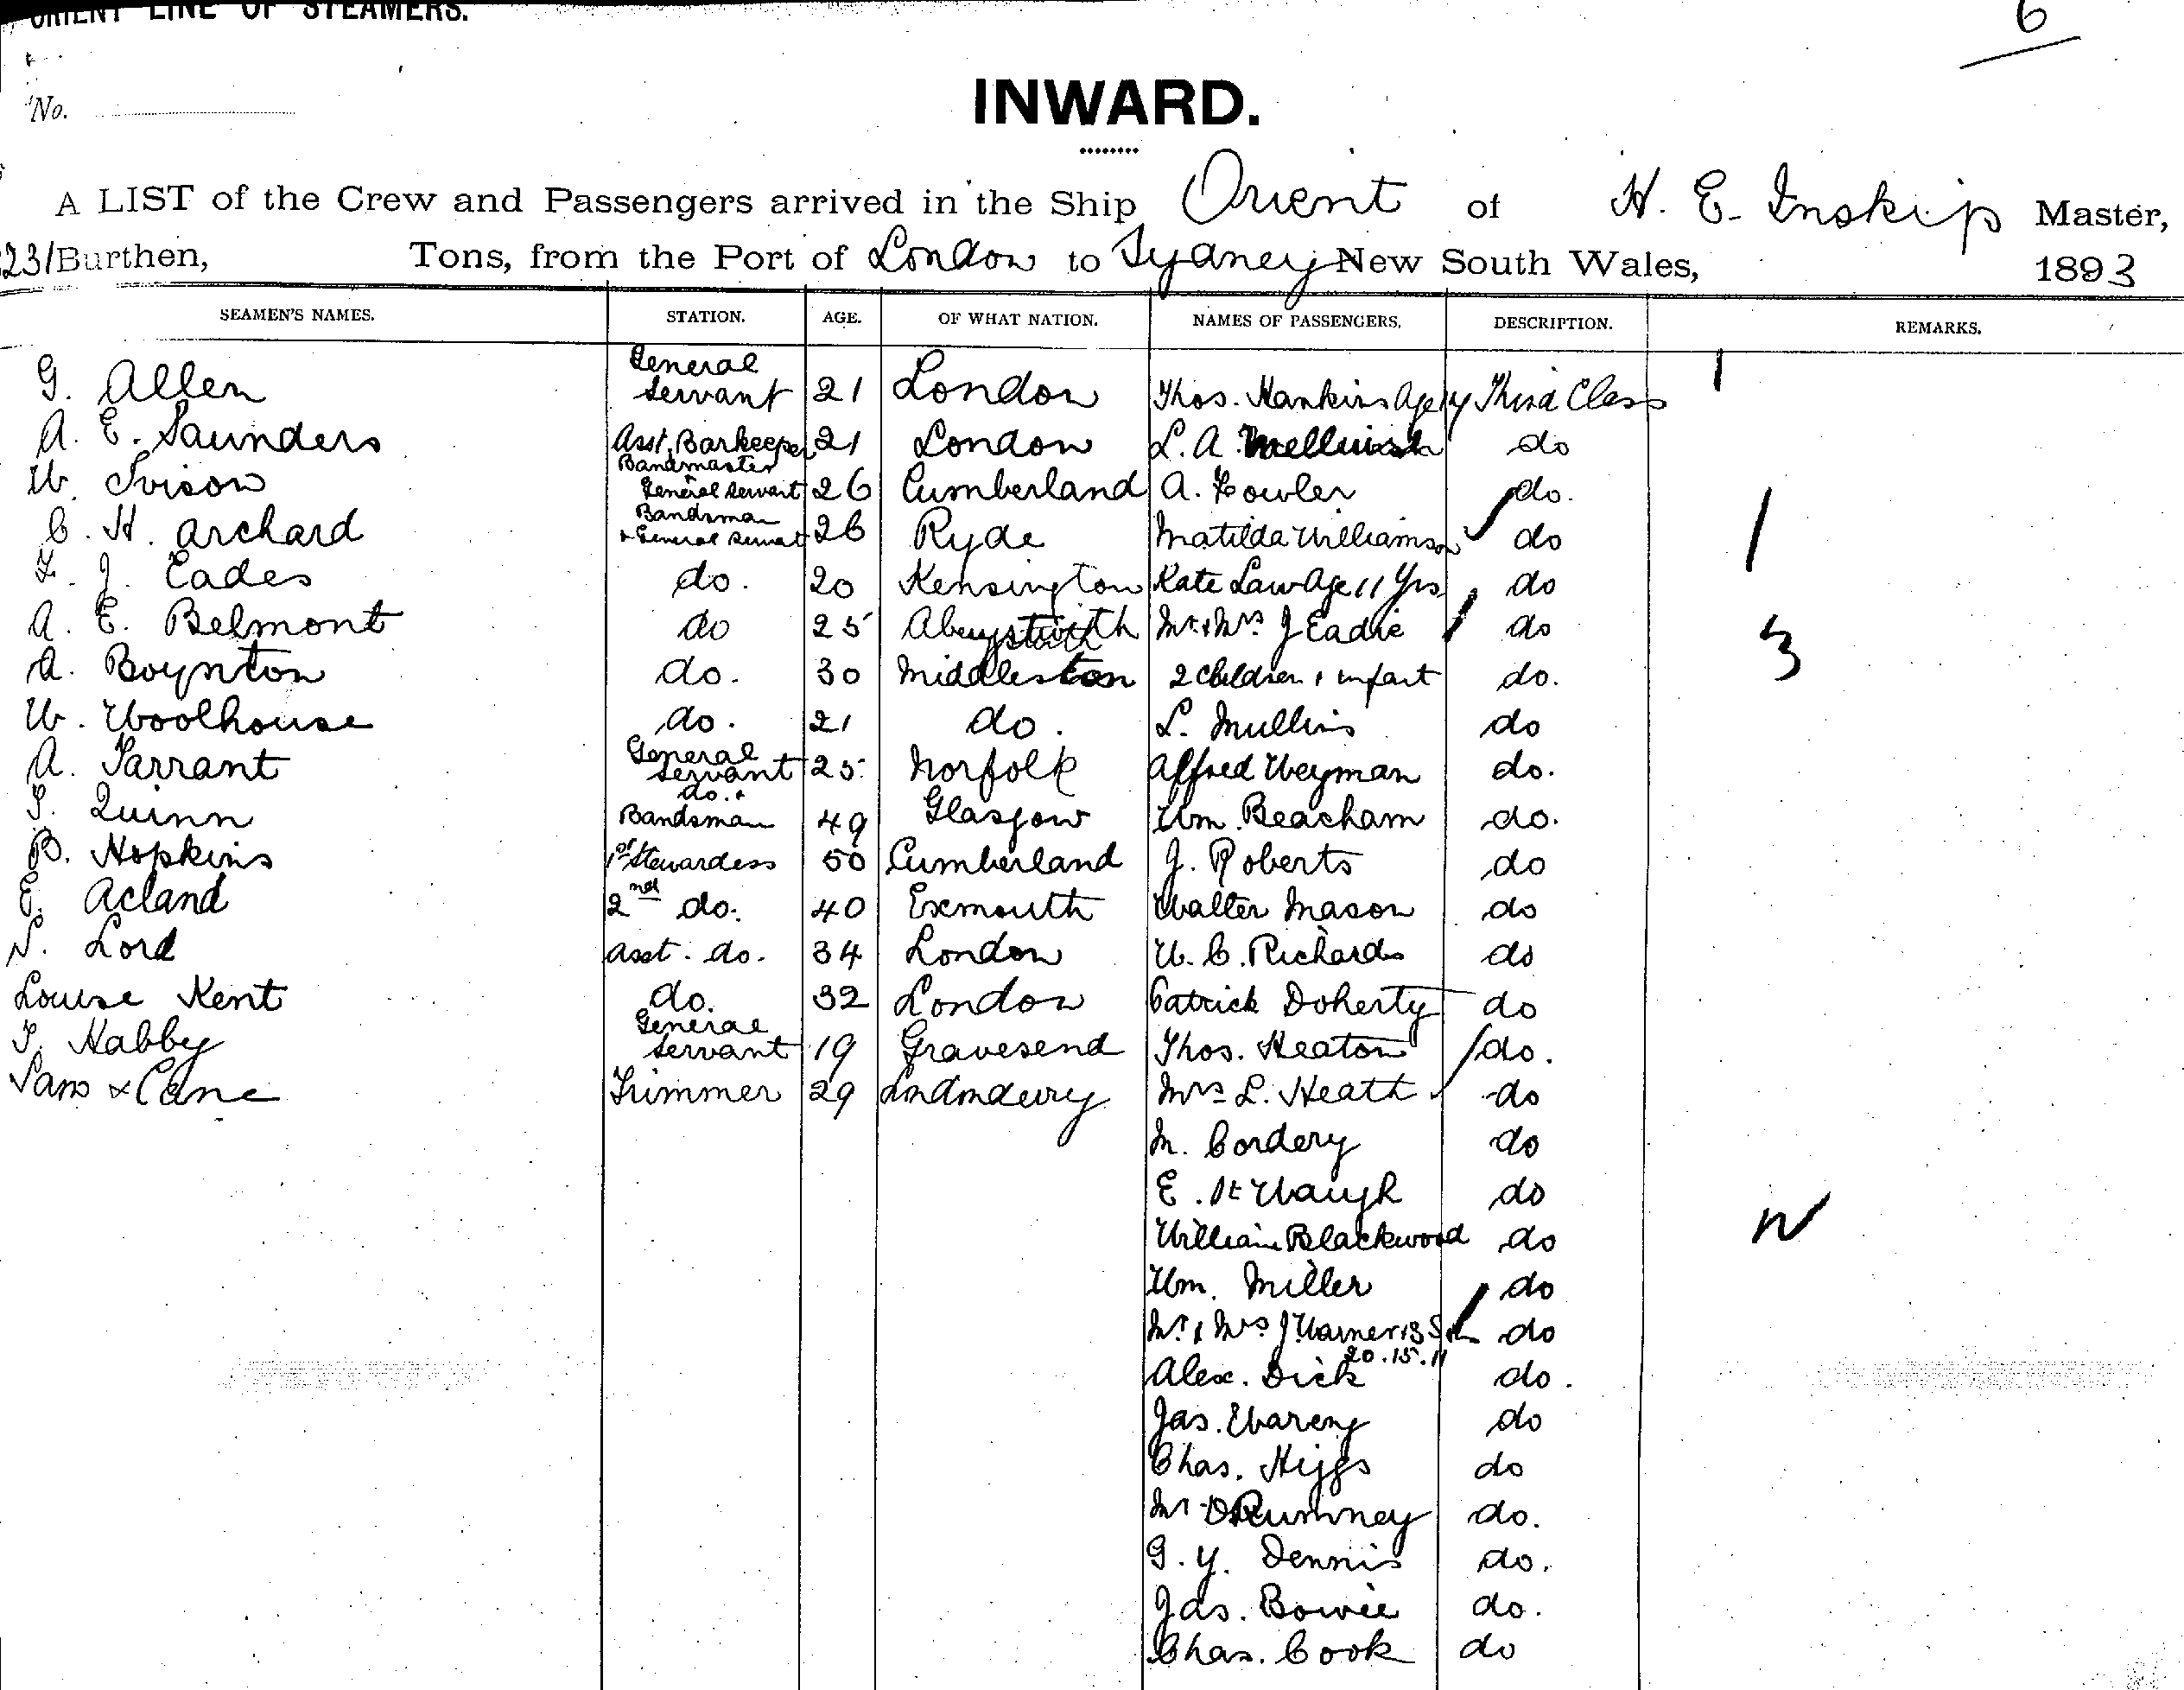 ORIENT LINE OF STEAMERS.
6
No.
INWARD.
A LIST of the Crew and Passengers arrived in the Ship Orient of H. E. Inskip Master,
231 Burthen, Tons, from the Port of London to Sydney New South Wales, 1893
SEAMEN'S NAMES. STATION. AGE. OF WHAT NATION. NAMES OF PASSENGERS. DESCRIPTION. REMARKS.
G. Allen General Servant 21 London Thos. Hankins Age 14 Third Class 1
A. E. Saunders Asst. Barkeeper 21 London L. A. Melluish do
W. Ivison Bandmaster General Servant 26 Cumberland A. Fowler do.
C. H. Archard Bandsman & General Servant 26 Ryde Matilda Williamson do 1
F. J. Eades do. 20 Kensington Kate Law Age 11 Yrs do
A. E. Belmont do 25 Aberystwith Mr & Mrs J Eadie do 3
A. Boynton do. 30 Middleston 2 Children & infant do.
W. Woolhouse do. 21 do. L. Mullins do
A. Tarrant General Servant 25 Norfolk Alfred Weyman do.
T. Quinn do. & Bandsman 49 Glasgow Wm. Beacham do.
B. Hopkins 1st Stewardess 50 Cumberland J. Roberts do
E. Acland 2nd do. 40 Exmouth Walter Mason do
N. Lord Asst. do. 34 London W. C. Richards do
Louise Kent do. 32 London Patrick Doherty do
T. Habby General Servant 19 Gravesend Thos. Heaton do.
Trimmer 29 Mrs L. Heath do
M. Cordery do
E. Waugh do
William Blackwood do N
Wm. Miller do
Mr & Mrs J. Warner & 3 do
20. 15. 11
Alex. Dick do.
Jas. do
Chas. Higgs do
Mr Rumney do.
G. Y. Dennis do.
Jas. Bowie do.
Chas. Cook do